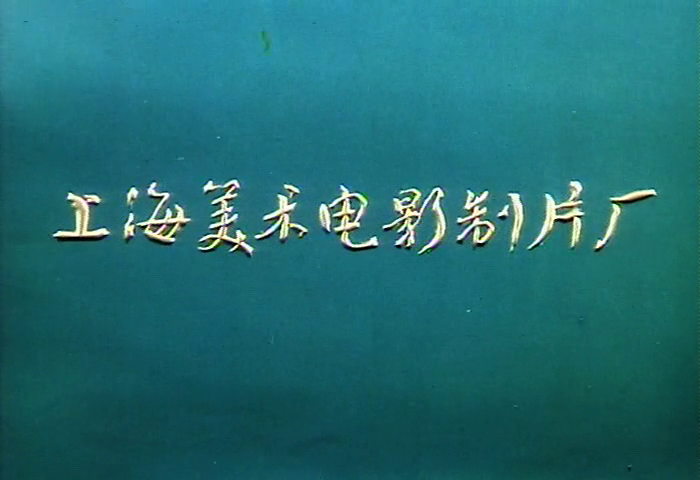 上海美术电影制片厂